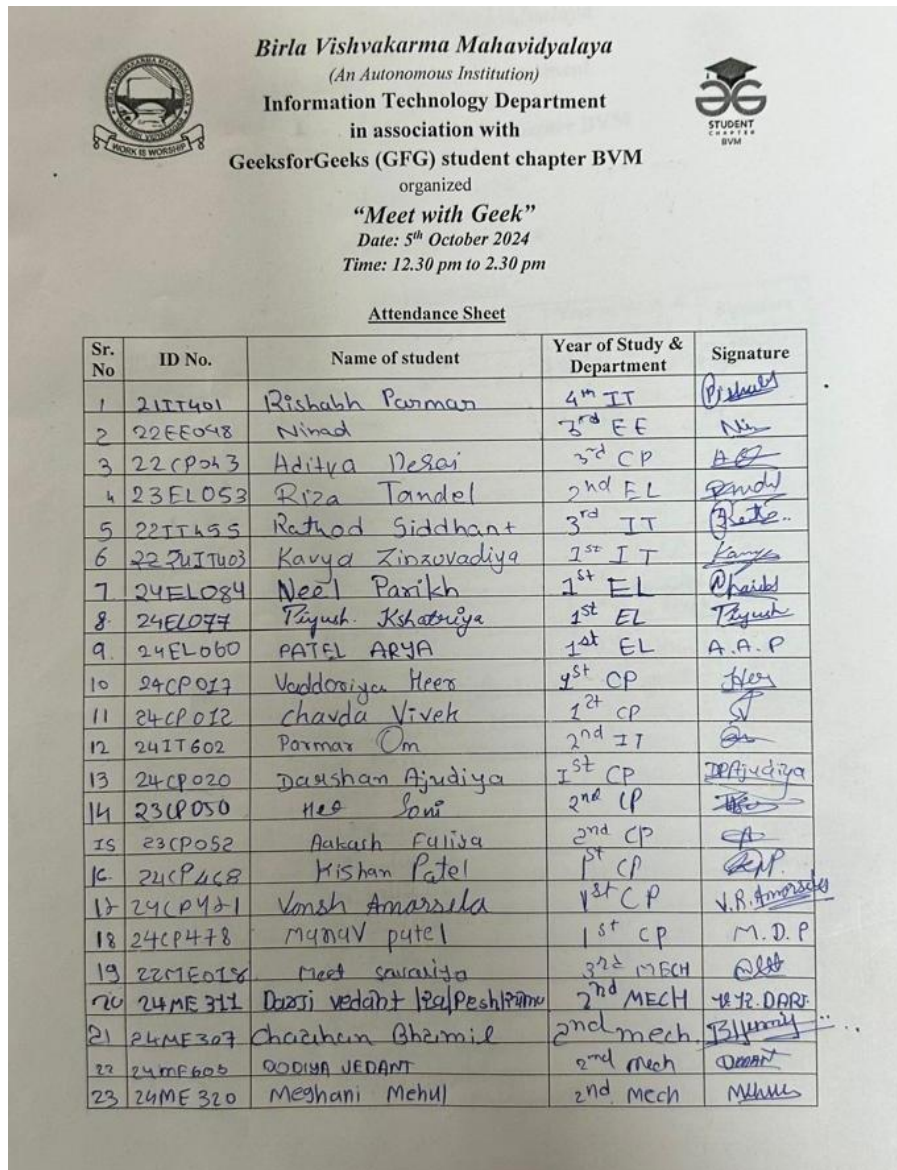 Birla Vishvakarma Mahavidyalaya
(An Autonomous Institution)
Information Technology Department
in association with
GeeksforGeeks (GFG) student chapter BVM
organized
“Meet with Geek”
Date: 5th October 2024
Time: 12.30 pm to 2.30 pm
BIRLA VISHVAKARMA MAHAVIDYALAYA
WORK IS WORSHIP
STUDENT
CHAPTER
BVM
Attendance Sheet
Sr. No ID No. Name of student Year of Study & Department Signature
1 21IT401 Rishabh Parmar 4th IT Rishabh
2 22EE048 Ninad 3rd EE
3 22CP043 Aditya Desai 3rd CP
4 23EL053 Riza Tandel 2nd EL
5 22IT455 Rathod Siddhant 3rd IT
6 Kavya Zinzuvadiya 1st IT Kavya
7. 24EL084 Neel Parikh 1st EL
8. 24EL077 Piyush. Kshatriya 1st EL Piyush
9. 24EL060 PATEL ARYA 1st EL A.A.P
10 24CP017 Vaddoriya Heer 1st CP Heer
11 24CP012 Chavda Vivek 1st CP
12 24IT602 Parmar Om 2nd IT
13 24CP020 Darshan Ajudiya 1st CP DPAjudiya
14 23CP050 Soni 2nd CP
15 23CP052 Aakash 2nd CP
16. 24CP468 Kishan Patel 1st CP
17 24CP421 Vansh Amarsela 1st CP V.R.Amarsela
18 24CP478 manav patel 1st CP M.D.P
19 22ME018 meet savariya 3rd MECH
20 24ME311 Darji vedant 2nd MECH
21 24ME307 Chauhan Bhamil 2nd mech.
22 24ME605 DODIYA VEDANT 2nd Mech
23 24ME320 Meghani Mehul 2nd Mech Mehul